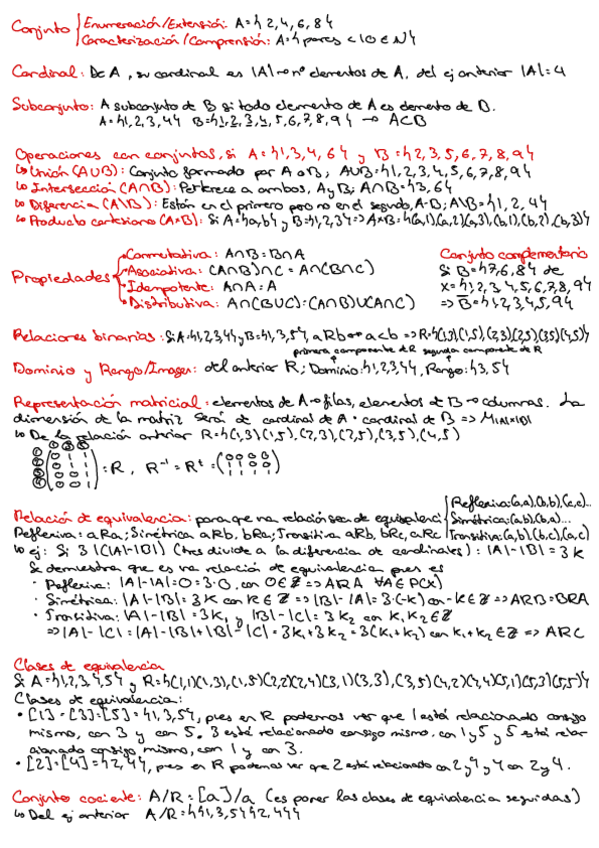 Conjunto { Enumeración/Extensión: A={2,4,6,8}
Caracterización/Comprensión: A={pares <10 ∈ N}
Cardinal: De A, su cardinal es |A| → nº elementos de A, del ej anterior |A|=4
Subconjunto: A subconjunto de B si todo elemento de A es elemento de B.
A={1,2,3,4} B={1,2,3,4,5,6,7,8,9} → A⊂B
Operaciones con conjuntos, si A={1,3,4,6} y B={2,3,5,6,7,8,9}
↳ Unión (A∪B): Conjunto formado por A o B; A∪B={1,2,3,4,5,6,7,8,9}
↳ Intersección (A∩B): Pertenece a ambos, A y B; A∩B={3,6}
↳ Diferencia (A\B): Están en el primero pero no en el segundo, A-B; A\B={1,2,4}
↳ Producto cartesiano (A×B): Si A={a,b} y B={1,2,3} => A×B={(a,1)(a,2)(a,3),(b,1),(b,2),(b,3)}
Propiedades
Conmutativa: A∩B=B∩A
Asociativa: (A∩B)∩C = A∩(B∩C)
Idempotente: A∩A=A
Distributiva: A∩(B∪C)=(A∩B)∪(A∩C)
Conjunto complementario
Si B={7,6,8} de
X={1,2,3,4,5,6,7,8,9}
=> B̅={1,2,3,4,5,9}
Relaciones binarias: Si A={1,2,3,4} y B={1,3,5}, aRb ↔ a<b => R={(1,3)(1,5),(2,3)(2,5)(3,5)(4,5)}
primera componente de R segunda componente de R
Dominio y Rango/Imagen: del anterior R; Dominio: {1,2,3,4}, Rango: {3,5}
Representación matricial: elementos de A → filas, elementos de B → columnas. La
dimensión de la matriz será de cardinal de A · cardinal de B => M|A|×|B|
↳ De la relación anterior R={(1,3)(1,5),(2,3),(2,5),(3,5),(4,5)
① ③ ⑤
① 0 1 1
② 0 1 1
③ 0 0 1
④ 0 0 1
= R, R⁻¹ = Rᵗ =
0 0 0 0
1 1 0 0
1 1 1 1
Relación de equivalencia: para que una relación sea de equivalenci { Reflexiva: (a,a),(b,b),(c,c)...
Simétrica: (a,b),(b,a)...
Transitiva: (a,b),(b,c),(a,c)
Reflexiva: aRa; Simétrica aRb, bRa; Transitiva aRb, bRc, aRc
↳ ej: Si 3|(|A|-|B|) (tres divide a la diferencia de cardinales): |A|-|B|=3K
Se demuestra que es una relación de equivalencia pues es
· Reflexiva: |A|-|A|=0=3·0, con 0∈Z => ARA ∀A∈P(X)
· Simétrica: |A|-|B|=3K con K∈Z => |B|-|A|=3·(-K) con -K∈Z => ARB=BRA
· Transitiva: |A|-|B|=3K₁ y |B|-|C|=3K₂ con K₁,K₂∈Z
=> |A|-|C|=|A|-|B|+|B|-|C|=3K₁+3K₂=3(K₁+K₂) con K₁+K₂∈Z => ARC
Clases de equivalencia
Si A={1,2,3,4,5} y R={(1,1)(1,3),(1,5)(2,2)(2,4)(3,1)(3,3),(3,5)(4,2)(4,4)(5,1)(5,3)(5,5)}
Clases de equivalencia:
• [1]=[3]=[5]={1,3,5}, pues en R podemos ver que 1 está relacionado consigo
mismo, con 3 y con 5. 3 está relacionado consigo mismo, con 1 y 5 y 5 está relac
ionado consigo mismo, con 1 y con 3.
• [2]=[4]={2,4}, pues en R podemos ver que 2 está relacionado con 2 y 4 y 4 con 2 y 4.
Conjunto cociente: A/R=[a]/a (es poner las clases de equivalencia seguidas)
↳ Del ej anterior A/R={{1,3,5}{2,4}}